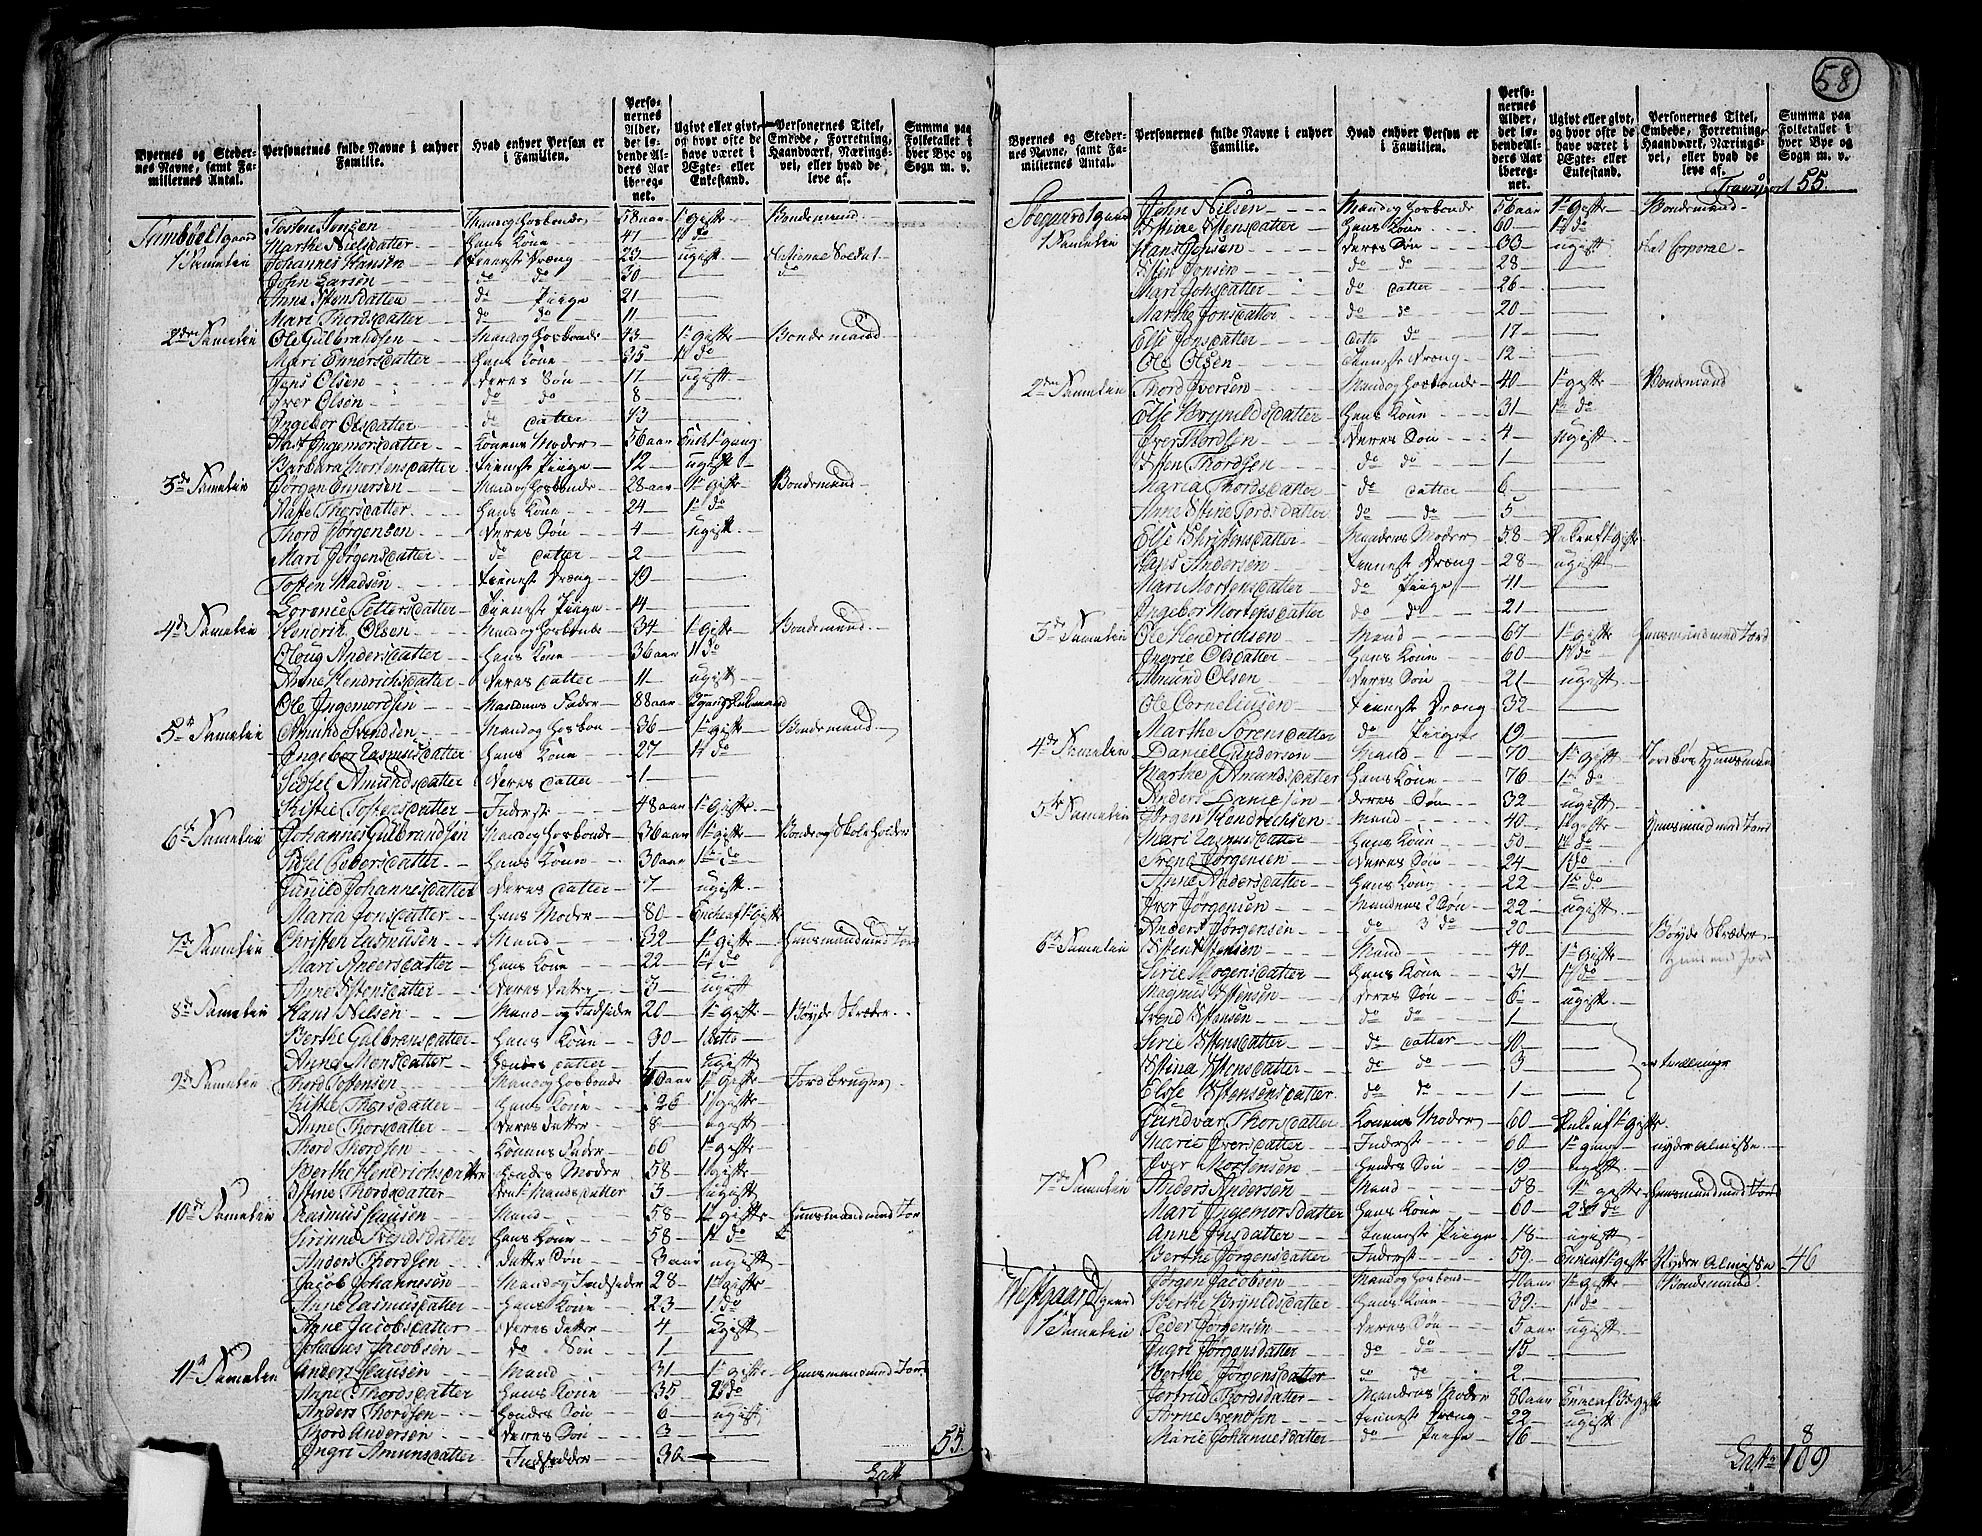 58
Byernes og Stedernes Navne, samt Familiernes Antal.
Personernes fulde Navne i enhver Familie.
Hvad enhver Person er i Familien.
Personernes Alder, det løbende Alders Aar iberegnet.
Ugivt eller givt, og hvor ofte de have været i Ægte- eller Enkestand.
Personernes Titel, Embede, Forretning, Haandværk, Næringsvei, eller hvad de leve af.
Summa paa Folketallet i hver Bye og Sogn m. v.
Tosten Jensen Mand og Hosbonde 58 aar 1te gifte Bondemand
1te Familie Marthe Nielsdatter Hans Kone 41 1te do
Johannes Hansen tieneste Dræng 23 ugift National Soldat
John Larsen do do 30 do
Anne Istensdatter do Piige 21
Mari Thordsdatter do do 11
2den Familie Ole Gulbrandsen Mand og Hosbonde 43 1te gifte Bondemand
Mari Enersdatter Hans Kone 35 1te do
Jens Olsen deres Søn 17 ugift
Iver Olsen do do 8
Ingebor Olsdatter do datter 13
Ingemorsdatter Konens Moder 56 aar
Barbara Mortensdatter tieneste Piige 12 ugift
3de Familie Jørgen Enersen Mand og Hosbonde 28 aar 1te gifte Bondemand
Thorsdatter Hans Kone 24 1te do
Thord Jørgensen deres Søn 4 ugift
Mari Jørgensdatter do datter 2
Tosten Madsen tieneste Dræng 19
Lorence Pettersdatter tieneste Piige 14
4de Familie Hendrik Olsen Mand og Hosbonde 34 1te gifte Bondemand
Oloug Andersdatter Hans Kone 36 aar 1te do
Anne Hendrichsdatter deres datter 11 ugift
Ole Ingemordsen Mandens Fader 88 aar
5te Familie Amund Svendsen Mand og Hosbon 36 1te gifte Bondemand
Ingebor Rasmusdatter Hans Kone 27 1te do
Sidsel Amundsdatter deres datter 1
Kistie Tostensdatter Inderst 48 aar 1te gifte
6te Familie Johannes Gulbrandsen Mand og Hosbonde 36 aar 1te gifte Bonde og Skoleholder
Sidsel Pedersdatter Hans Kone 30 aar 1te do
Gunild Johannesdatter deres datter 7 ugift
Maria Jonsdatter Hans Moder 80
7de Familie Christen Rasmusen Mand 32 1te gifte Huusmand med Jord
Mari Andersdatter Hans Kone 22 1te do
Anne Istensdatter deres datter 3 ugift
8de Familie Hans Nilsen Mand og Indsidder 20 1te gifte Bøyde Skræder
Berthe Gulbrensdatter Hans Kone 30 1 ditto
Anne Monsdatter Hendes datter 1 ugift
9de Familie Thord Tostensen Mand og Hosbonde 40 aar 1te gifte Jordbruger
Kistie Thorsdatter Hans Kone 26 1 gifte
Anne Thorsdatter deres datter 8 ugift
Thord Thordsen Konens Fader 66 1te gifte
Berthe Hendrichsdatter Hendes Moder 58 1 gifte
Istine Thordsdatter datter 3 ugift
10de Familie Rasmus Hansen Mand 58 1te gifte Huusmand med Jor
Sirinne Svendsdatter Hans Kone 58 1te do
Anders Thordsen datter Søn 3 aar ugift
Jacob Johannesen Mand og Indsidder 28 1te gifte
Anne Rasmusdatter Hans Kone 23 1 do
Anne Jacobsdatter deres datter 4 ugift
Johanes Jacobsen do Søn 1
11te Familie Anders Hansen Mand 31 1te gifte Huusmand med Jor
Anne Thordsdatter Hans Kone 35 2 do
Anders Thordsen Hendes Søn 6 ugift
Thord Andersen deres Søn 3
Ingri Amunsdatter Indsidder 30 55
Latt
Byernes og Stedernes Navne, samt Familiernes Antal.
Personernes fulde Navne i enhver Familie.
Hvad enhver Person er i Familien.
Personernes Alder, det løbende Alders Aar iberegnet.
Ugivt eller givt, og hvor ofte de have været i Ægte- eller Enkestand.
Personernes Titel, Embede, Forretning, Haandværk, Næringsvei, eller hvad de leve af.
Summa paa Folketallet i hver Bye og Sogn m. v.
Transport 55
John Nilsen Mand og Hosbonde 56 aar 1te gifte Bondemand
1 Familie Istine Istensdatter Hans Kone 60 1te do
Hans Jonsen deres Søn 33 ugift
Isten Jonsen do do 28
Mari Jonsdatter do datter 26
Marthe Jonsdatter do do 20
Else Jonsdatter ditto do 17
Ole Olsen tieneste Dræng 12
2den Familie Thord Iversen Mand og Hosbonde 40 1te gifte Bondemand
Else Brynildsdatter Hans Kone 31 1te do
Iver Thordsen deres Søn 4 ugift
Isten Thordsen do do 1
Maria Thordsdatter do datter 6
Anne Stine Tordsdatter do do 5
Else Christensdatter Mandens Moder 58
Andersen tieneste Dræng 28 ugift
Mari Mortensdatter do Piige 41
Ingebor Mortensdatter do do 21
3de Familie Ole Hendrichsen Mand 67 1te gifte Huusmand med Jord
Ingrie Olsdatter Hans Kone 60 1te do
Amund Olsen deres Søn 21 ugift
Ole Corneliusen tieneste Dræng 32
Marthe Sorensdatter do Piige 19
4de Familie Daniel Gundersen Mand 70 1te gift Jordløs Huusmand
Marthe Amundsdatter Hans Kone 76 1te do
Anders Danielsen deres Søn 32 ugift
5te Familie Jørgen Hendrichsen Mand 40 1te gifte Huusmand med Jord
Mari Rasmusdatter Hans Kone 50 1te do
Svend Jørgensen deres Søn 24 1te do
Anne Andersdatter Hans Kone 22 1te do
Iver Jørgensen Mandens 2 Søn 22 ugift
Anders Jørgensen do 3 do 20
6te Familie Isten Istensen Mand 40 1te gifte Bøyde Skræder
Serie Mogensdatter Hans Kone 31 1te do
Magnus Istensen deres Søn 6 ugift
Svend Istensen do do 1
Serie Istensdatter do datter 10
Istina Istensdatter do do 3
er tvillinge
Elsse Istensensdatter do do 1
Gundvar Thorsdatter Konens Moder 60
Marie Iversdatter Inderst 60 1te nyder Almisse
Iver Mortensen Hendes Søn 19 ugift
7de Familie Anders Andersen Mand 58 1te gifte Huusmand med Jord
Mari Ingemorsdatter Hans Kone 60 2den do
Anne Jnsdatter tieneste Piige 18 ugift
Berthe Jørgensdatter Inderst 59 Nyder Almisse 46
Westgaard Jørgen Jacobsen Mand og Hosbond 40 aar 1te gifte Bondemand
Berthe Brynildsdatter Hans Kone 39 1te do
1te Familie Peder Jørgensen deres Søn 5 aar ugift
Ingri Jørgensdatter do do 15
Berthe Jørgensdatter do do 2
Gertrud Thordsdatter Mandens Moder 80 aar
Arne Svendsen tieneste Dræng 22 ugift
Marie Johanesdatter do Piige 16 8
Latt 109